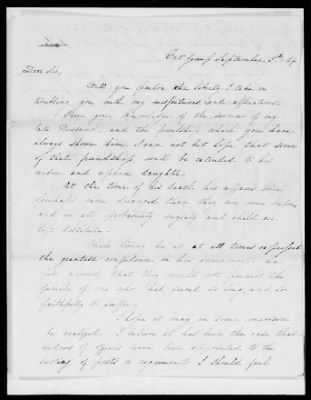 September 5th 64
Dear Sir,
Will you pardon the liberty I take in
troubling you with my misfortunes and afflictions.
From your knowledge of the services of my
late Husband, and the friendship which you have
always shown him, I can not but hope that some
of that friendship will be extended to his
widow and orphan daughter.
At the time of his death his affairs were
perhaps more deranged than they ever were before
and in all probability myself and child are
left destitute.
While living he at all times expressed
the greatest confidence in his government, he
felt assured that they would not permit the
family of one who had served so long, and so
faithfully to suffer.
I hope it may in some measure
be realized. I believe it has been the case that
widows of officers have been appointed to the
of posts or regiments I should feel